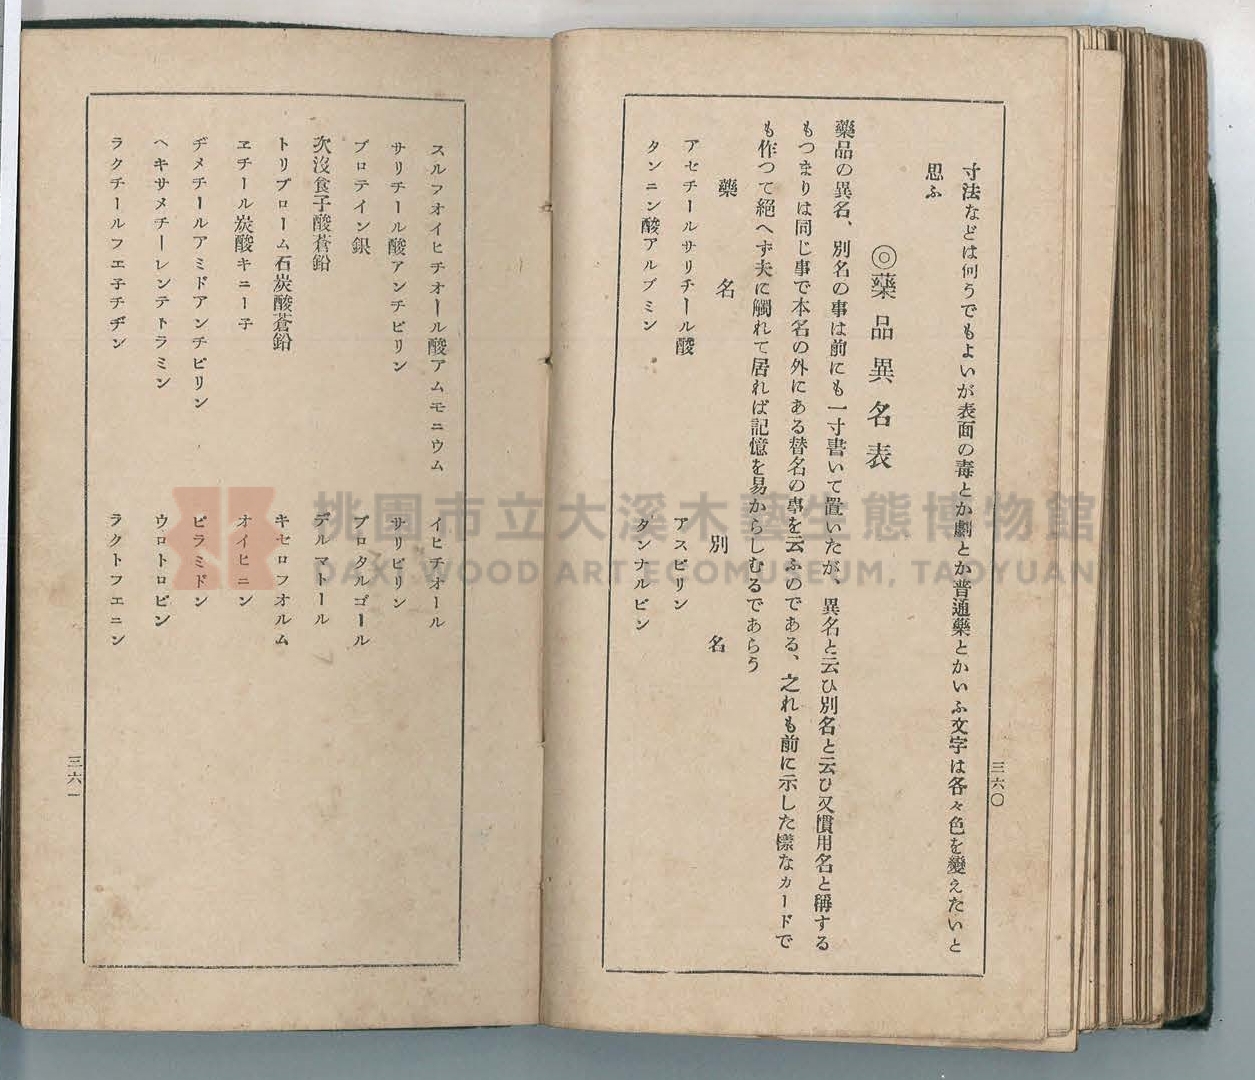 寸法などは何うでもよいが表面の毒とか劇とか普通藥とかいふ文字は各々色を變えたいと
思ふ
◎藥品異名表
藥品の異名、別名の事は前にも一寸書いて置いたが、異名と云ひ別名と云ひ又慣用名と稱する
もつまりは同じ事で本名の外にある替名の事を云ふのである、之れも前に示した樣なカードで
も作つて絕へず夫に觸れて居れば記憶を易からしむるであらう
藥名 別名
アセチールサリチール酸 アスピリン
タンニン酸アルブミン タンナルビン
三六〇
スルフオイヒチオール酸アムモニウム イヒチオール
サリチール酸アンチピリン サリピリン
プロテイン銀 プロタルゴール
次沒食子酸蒼鉛 デルマトール
トリブローム石炭酸蒼鉛 キセロフオルム
ヱチール炭酸キニー子 オイヒニン
ヂメチールアミドアンチピリン ピラミドン
ヘキサメチーレンテトラミン ウロトロピン
ラクチールフエ子チヂン ラクトフエニン
三六一
桃園市立大溪木藝生態博物館
DAXI WOOD ART ECOMUSEUM, TAOYUAN